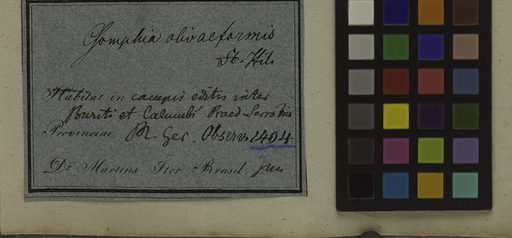 Gomphia olivaeformis
St. Hil.
Habitat in campis editis inter
Buriti et Calumbi Praed. Serro frio
Provinciae M. Ger. Observ. 1404
Dr. Martius Iter Brasil.